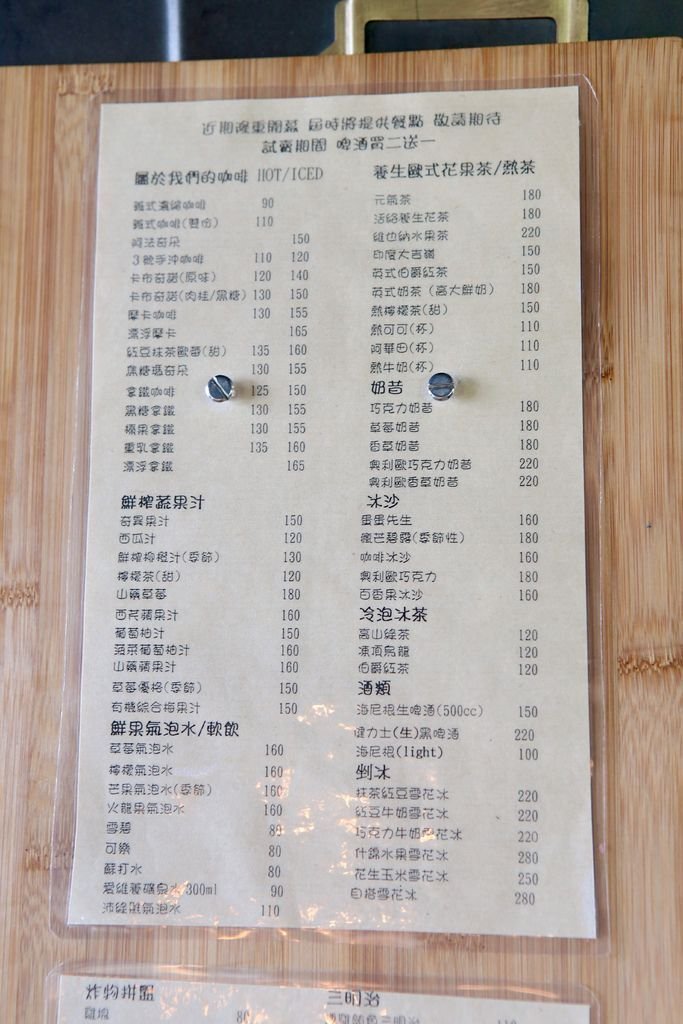 近期隆重開幕 屆時將提供餐點 敬請期待
試賣期間 啤酒買二送一
屬於我們的咖啡 HOT/ICED
義式濃縮咖啡 90
義式咖啡(雙份) 110
阿法奇朵 150
3號手沖咖啡 110 120
卡布奇諾(原味) 120 140
卡布奇諾(肉桂/黑糖) 130 150
摩卡咖啡 130 155
漂浮摩卡 165
紅豆抹茶歐蕾(甜) 135 160
焦糖瑪奇朵 130 155
拿鐵咖啡 125 150
黑糖拿鐵 130 155
榛果拿鐵 130 155
重乳拿鐵 135 160
漂浮拿鐵 165
鮮榨蔬果汁
奇異果汁 150
西瓜汁 120
鮮榨柳橙汁(季節) 130
檸檬茶(甜) 120
山藥草莓 180
西芹蘋果汁 160
葡萄柚汁 150
菠菜葡萄柚汁 160
山藥蘋果汁 160
草莓優格(季節) 150
有機綜合梅果汁 150
鮮果氣泡水/軟飲
草莓氣泡水 160
檸檬氣泡水 160
芒果氣泡水(季節) 160
火龍果氣泡水 160
雪碧 80
可樂 80
蘇打水 80
愛維養礦泉水 300ml 90
沛綠雅氣泡水 110
養生歐式花果茶/熱茶
元氣茶 180
活絡養生花茶 180
維也納水果茶 220
印度大吉嶺 150
英式伯爵紅茶 150
英式奶茶(高大鮮奶) 180
熱檸檬茶(甜) 150
熱可可(杯) 110
阿華田(杯) 110
熱牛奶(杯) 110
奶昔
巧克力奶昔 180
草莓奶昔 180
香草奶昔 180
奧利歐巧克力奶昔 220
奧利歐香草奶昔 220
冰沙
蛋蛋先生 160
瘋芒碧露(季節性) 180
咖啡冰沙 160
奧利歐巧克力 180
百香果冰沙 160
冷泡冰茶
高山綠茶 120
凍頂烏龍 120
伯爵紅茶 120
酒類
海尼根生啤酒(500cc) 150
健力士(生)黑啤酒 220
海尼根(light) 100
剉冰
抹茶紅豆雪花冰 220
紅豆牛奶雪花冰 220
巧克力牛奶雪花冰 220
什錦水果雪花冰 280
花生玉米雪花冰 250
自搭雪花冰 280
炸物拼盤
雞塊 80
三明治